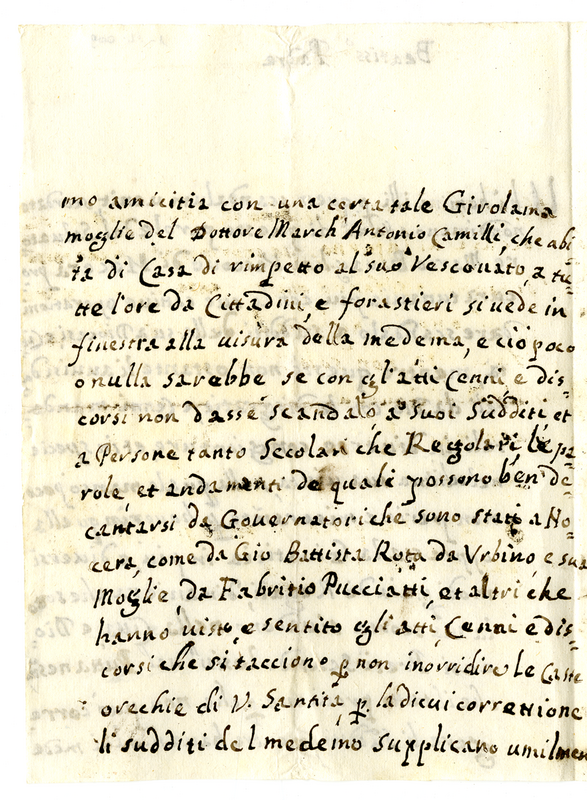 mo amicitia con una certa tale Girolama
moglie del Dottore March' Antonio Camilli, che abi
ta di Casa di rimpetto al suo Vescovato, a tu=
tte l'ore da Cittadini, e forastieri si vede in
finestra alla visura della medema, e ciò poco
o nulla sarebbe se con gl'atti Cenni e dis=
corsi non dasse scandalo a suoi sudditi et
a Persone tanto Secolari che Regolari le pa=
role, et andamenti de quali possono ben de=
cantarsi da Governatori che sono stati a No=
cera, come da Gio Battista Rota da Urbino e sua
Moglie da Fabritio Pucciatti, et altri che
hanno visto, e sentito gli atti, Cenni e dis=
corsi che si tacciono p non inorridire le Caste
orechie di V. Santità, p la di cui corretione
li sudditi del medemo supplicano umilmen